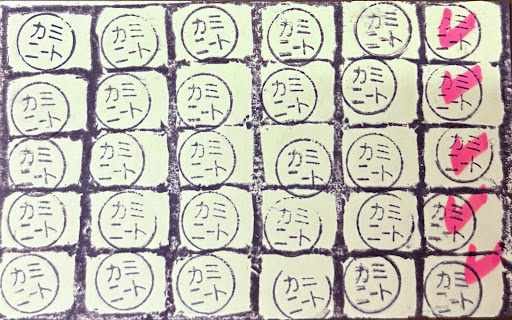 カミ カミ カミ カミ カミ カミ
ニート ニート ニート ニート ニート ニート
カミ カミ カミ カミ カミ カミ
ニート ニート ニート ニート ニート ニート
カミ カミ カミ カミ カミ カミ
ニート ニート ニート ニート ニート ニート
カミ カミ カミ カミ カミ カミ
ニート ニート ニート ニート ニート ニート
カミ カミ カミ カミ カミ カミ
ニート ニート ニート ニート ニート ニート